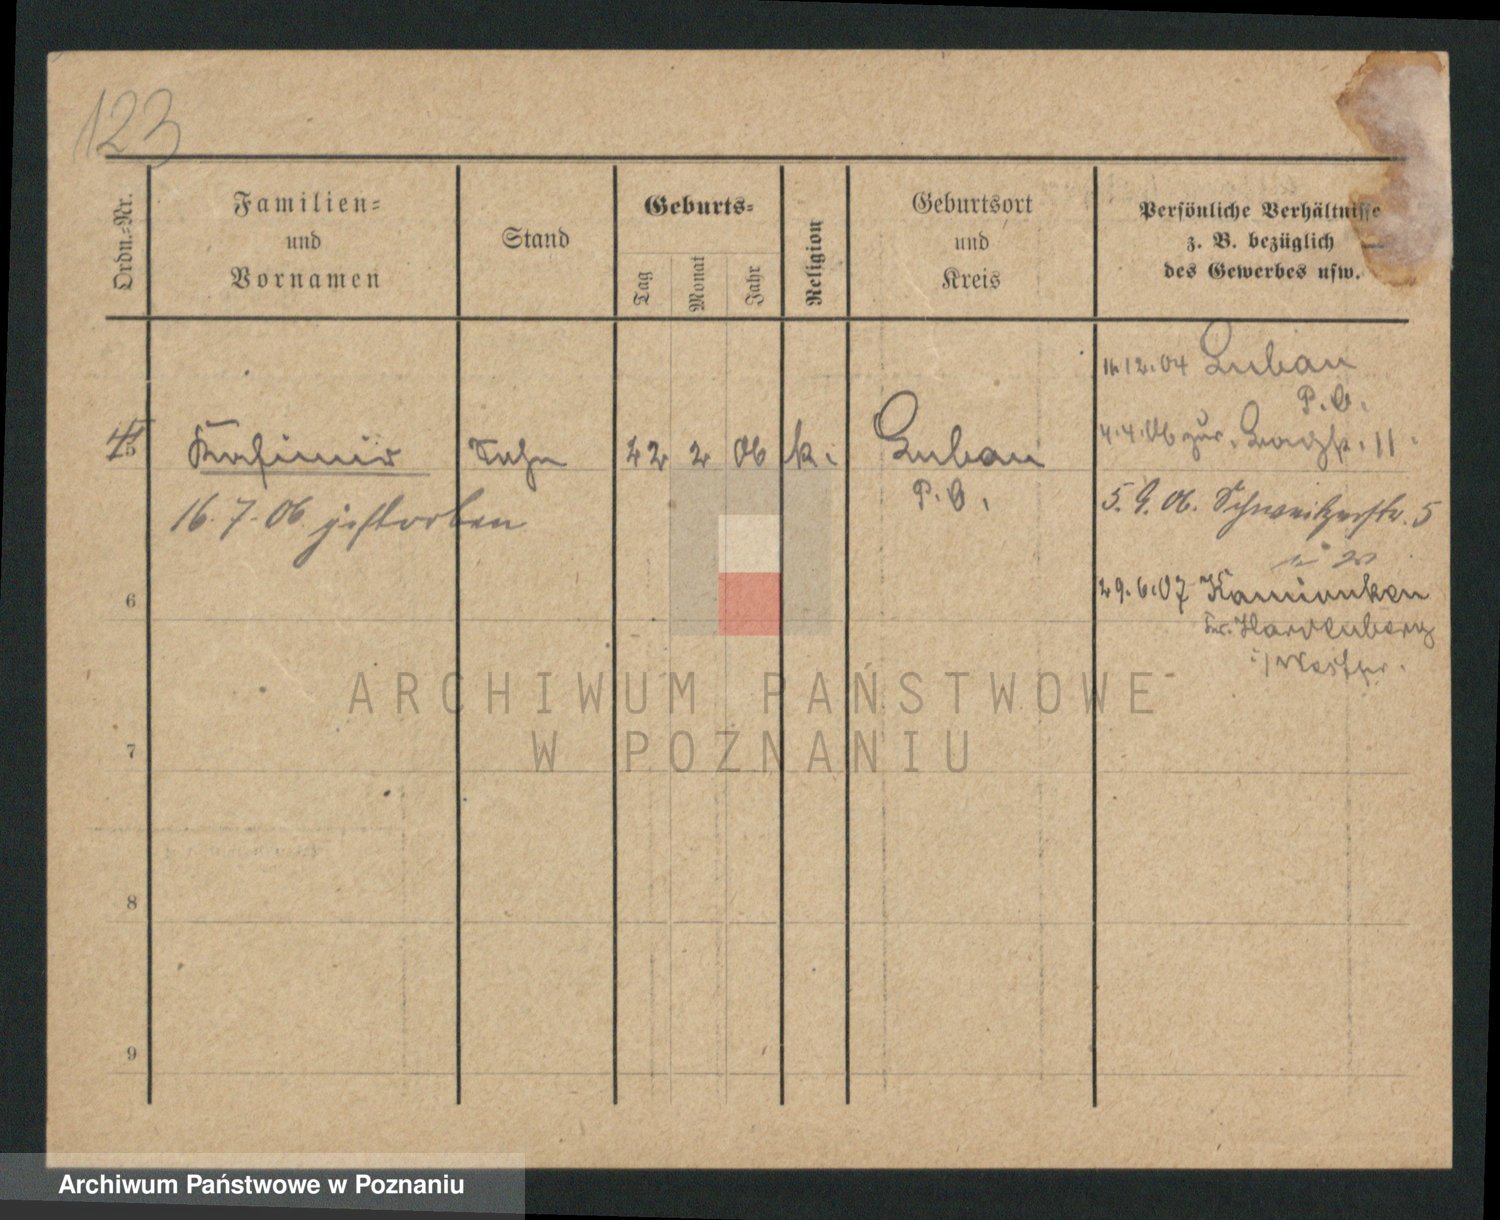 123
Ordn.=Nr.
Familien=
und
Vornamen
Stand
Geburts=
Tag
Monat
Jahr
Religion
Geburtsort
und
Kreis
Persönliche Verhältnisse
z. B. bezüglich
des Gewerbes usw.
11.12.04 Luban
P. O.
4.4.06 zur. 11.
5
Kasimir Sohn 22 2 06 k. Luban
P. O.
16.7.06 gestorben
5.9.06. Schweitzerstr. 5
6
29.6.07 Kamionken
Hardenberg
i/Westpr.
7
8
9
ARCHIWUM PAŃSTWOWE
W POZNANIU
Archiwum Państwowe w Poznaniu